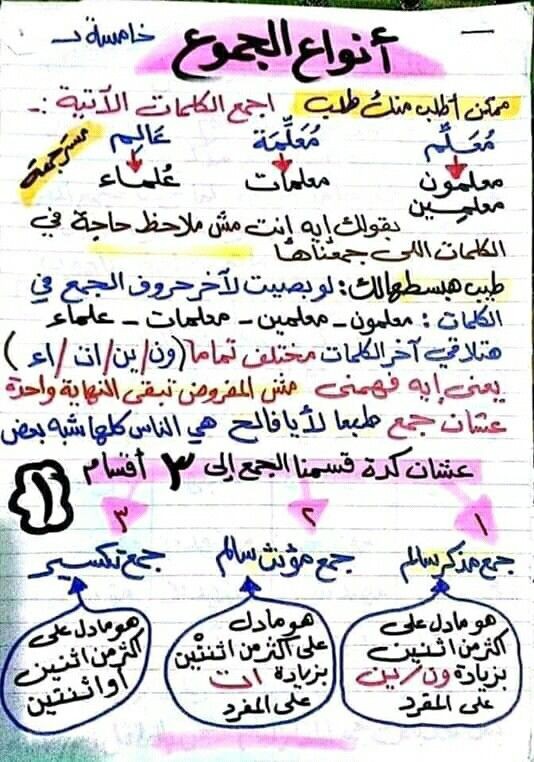 خامسة ب
أنواع الجموع
ممكن أطلب منك طلب اجمع الكلمات الآتية :-
مُعَلِّم مُعَلِّمَة عَالِم
معلمون معلمات عُلماء
معلمين
بقولك إيه إنت مش ملاحظ حاجة في
الكلمات اللى جمعناها
طيب هبسطهالك: لو بصيت لآخر حروف الجمع في
الكلمات : معلمون - معلمين - معلمات - علماء
هتلاقي آخر الكلمات مختلف تماما (ون/ين/ات/اء)
يعنى إيه فهمنى مش المفروض تبقى النهاية واحدة
عشان جمع طبعا لأ يا فالح هي الناس كلها شبه بعض
عشان كدة قسمنا الجمع إلى ٣ أقسام
١
١ ٢ ٣
جمع مذكر سالم جمع مؤنث سالم جمع تكسير
هو ما دل على
أكثر من اثنين
بزيادة ون/ين
على المفرد
هو ما دل
على أكثر من اثنتين
بزيادة ات
على المفرد
هو ما دل على
أكثر من اثنين
أو اثنتين